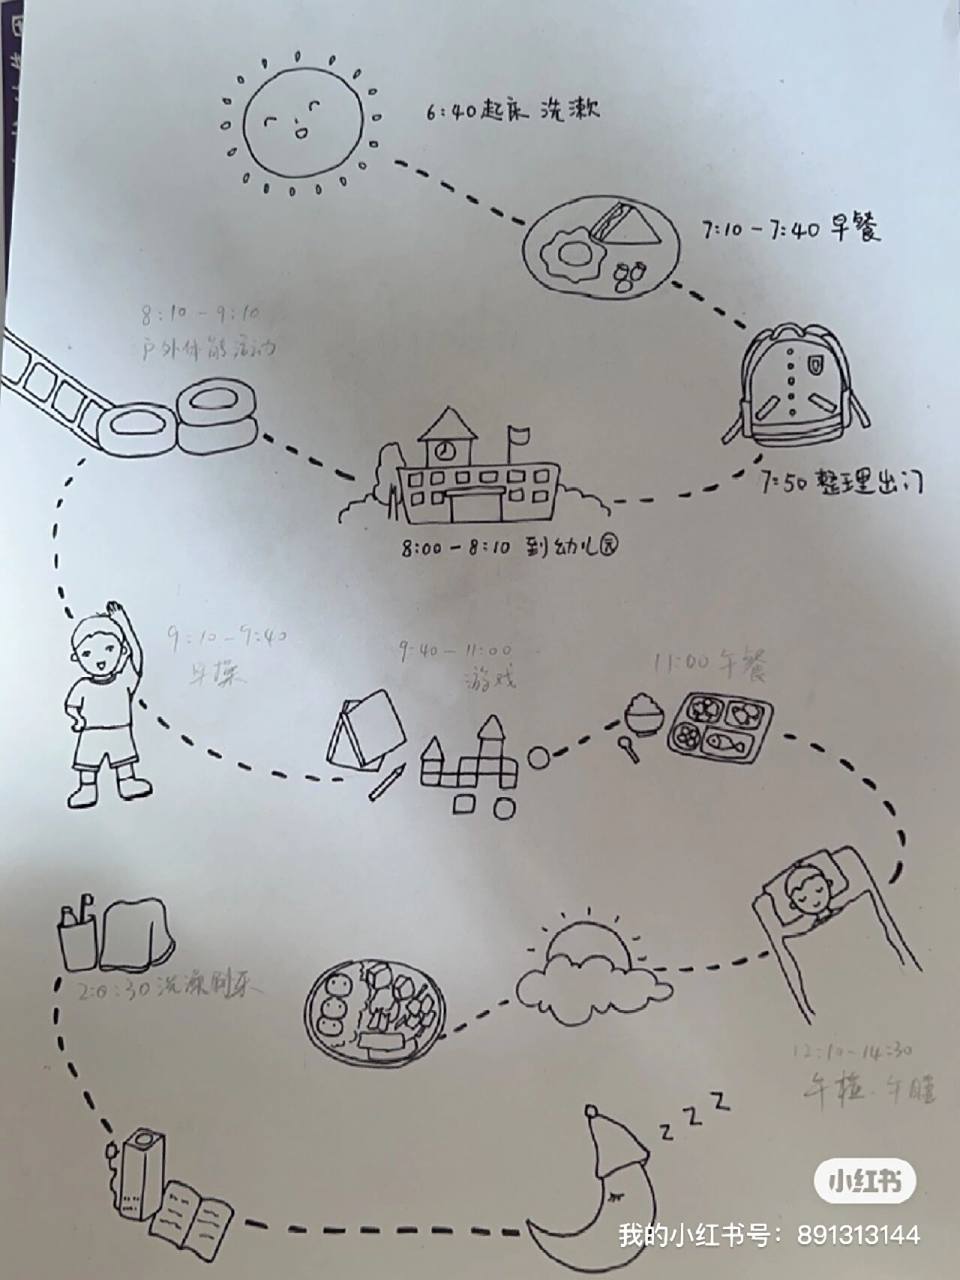 6:40起床 洗漱
7:10-7:40 早餐
8:10-9:10
户外体能活动
7:50 整理出门
8:00-8:10 到幼儿园
9:10-9:40
早操
9:40-11:00
游戏
11:00 午餐
20:30 洗澡刷牙
12:10-14:30
午睡
z z z
小红书
我的小红书号：891313144